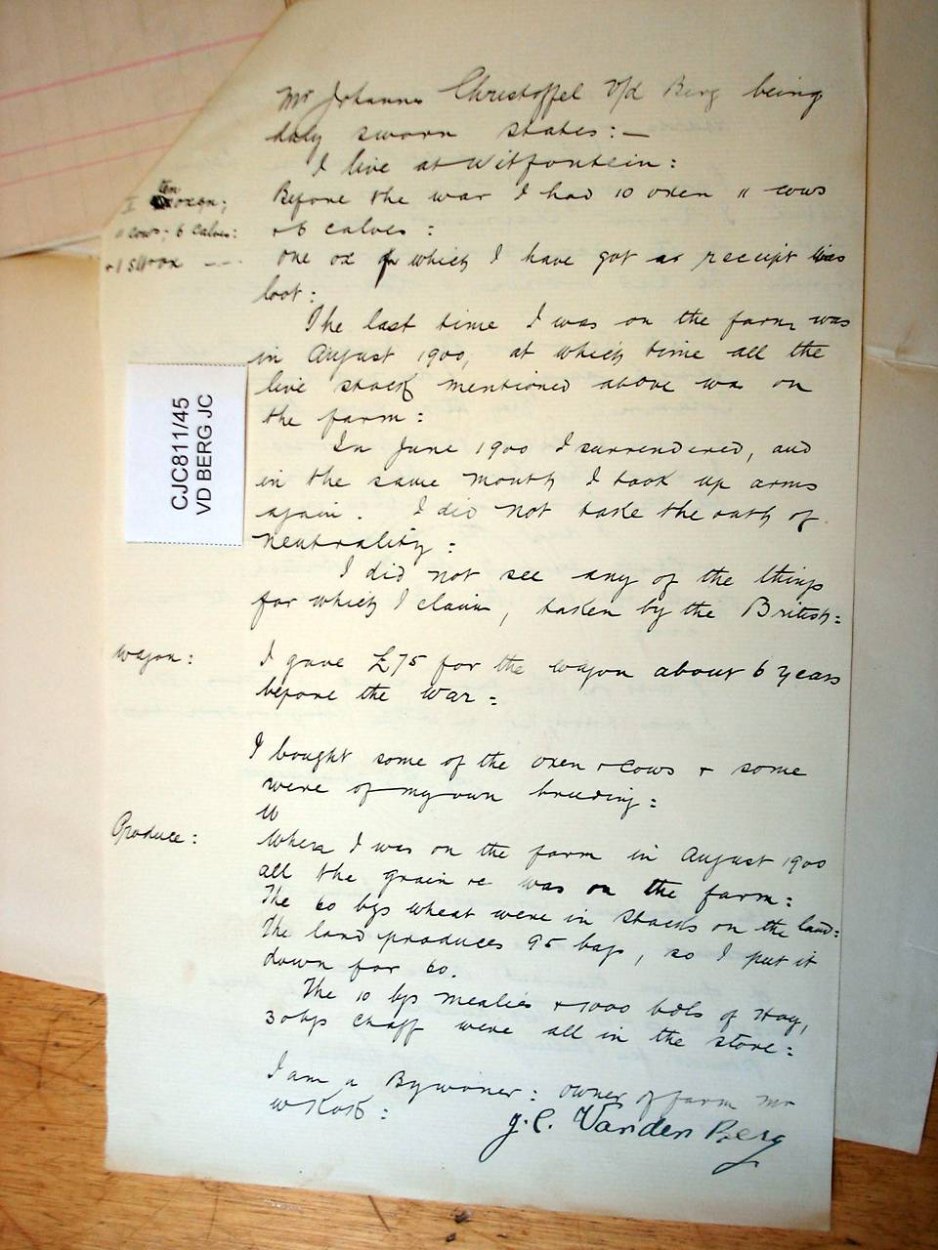 Mr Johannes Christoffel V/d Berg being
duly sworn states:—
I live at Witfontein:
ten
oxen;
Before the war I had 10 oxen 11 cows
11 cows; 6 calves:
+ 6 calves:
+ 1 Sl ox ---
one ox for which I have got a receipt was
loot:
The last time I was on the farm was
in August 1900, at which time all the
live stock mentioned above was on
the farm:
In June 1900 I surrendered, and
in the same month I took up arms
again. I did not take the oath of
neutrality:
I did not see any of the things
for which I claim, taken by the British:
Wagon:
I gave £75 for the wagon about 6 years
before the war:
I bought some of the oxen + cows + some
were of my own breeding:
W
Produce:
When I was on the farm in August 1900
all the grain &c was on the farm:
The 60 bgs wheat were in stacks on the land:
The land produces 95 bags, so I put it
down for 60.
The 10 bgs mealies + 1000 bdls of Hay,
30 bgs chaff were all in the store:
I am a Bywoner: owner of farm Mr
W Kok:
J. C. Van den Berg
CJC811/45
VD BERG JC